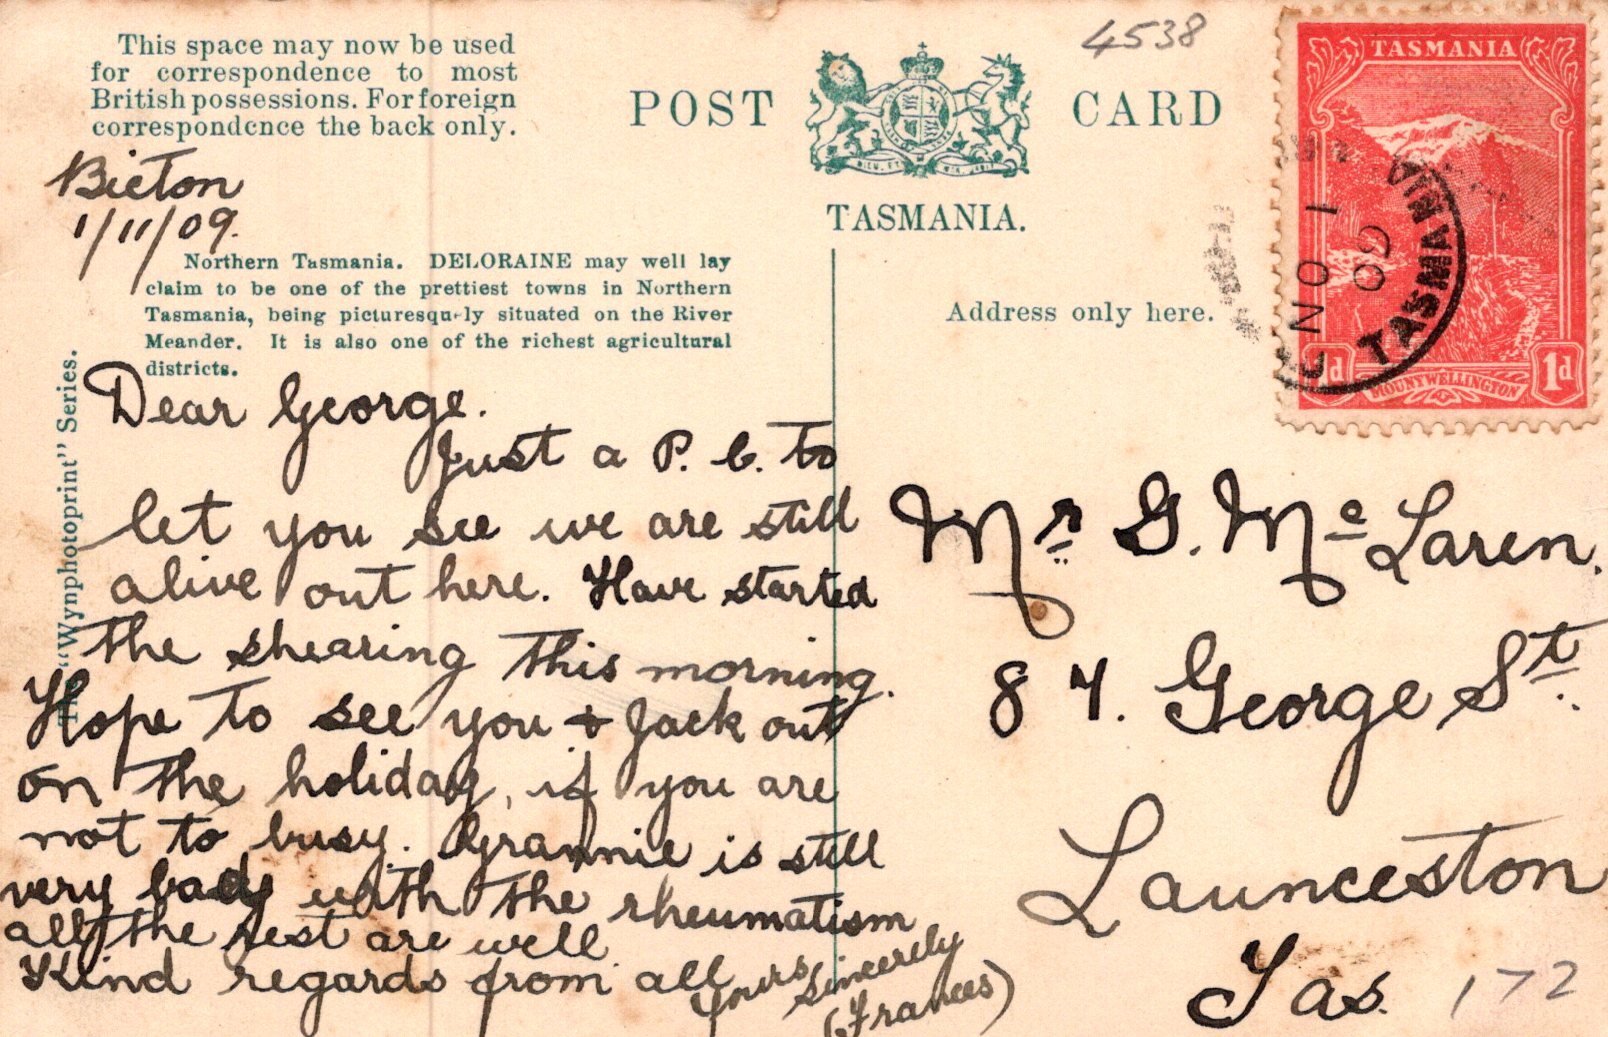 This space may now be used
for correspondence to most
British possessions. For foreign
correspondence the back only.
4538
POST CARD
TASMANIA.
TASMANIA
MOUNT WELLINGTON
1d
1d
NO 1
09
TASMANIA
Bicton
1/11/09.
Northern Tasmania. DELORAINE may well lay
claim to be one of the prettiest towns in Northern
Tasmania, being picturesquely situated on the River
Meander. It is also one of the richest agricultural
districts.
The "Wynphotoprint" Series.
Address only here.
Dear George.
Just a P. C. to
let you see we are still
alive out here. Have started
the shearing this morning.
Hope to see you & Jack out
on the holiday, if you are
not to busy. Grannie is still
very bad with the rheumatism
all the rest are well.
Kind regards from all
Yours sincerely
(Frances)
Mr. G. Mc Laren.
84. George St.
Launceston
Tas.
172